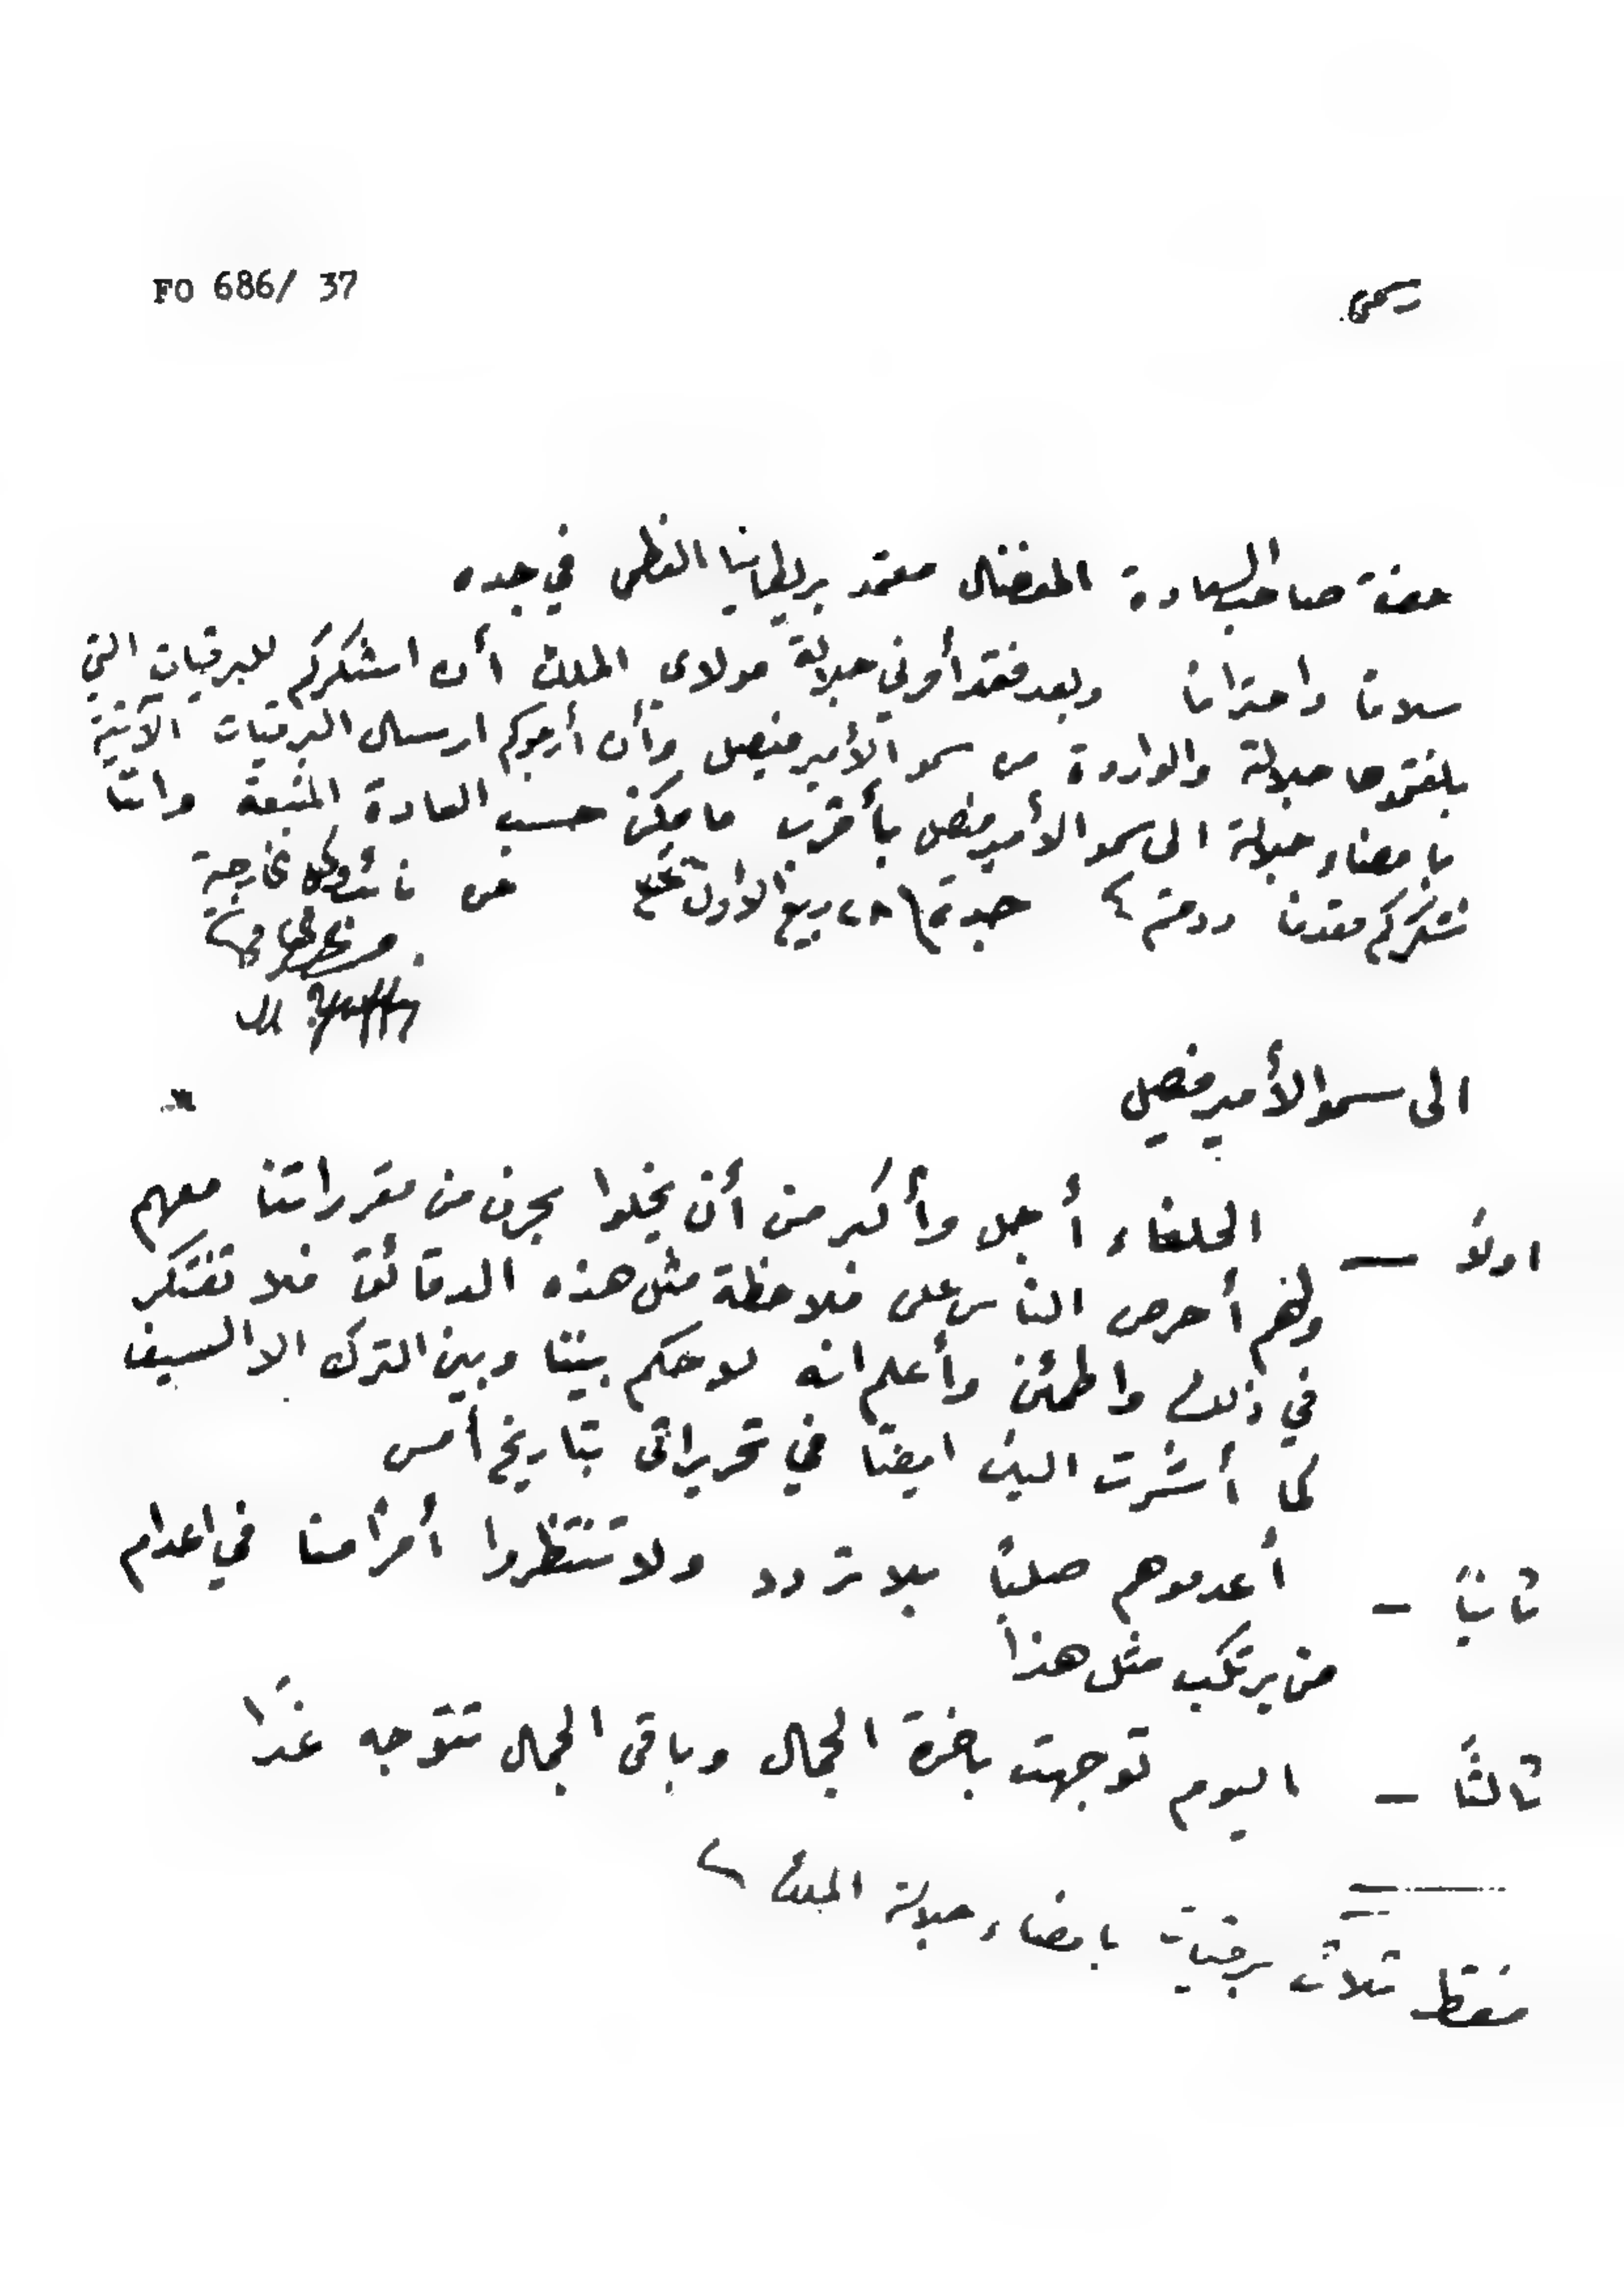 FO 686/ 37
رسمي
حضرة صاحب السعادة المفضال معتمد بريطانيا العظمى في جده
سلاما واحتراما وبعد فقد أمرني جلالة مولاي الملك أن اشكركم للبرقيات التي
بلغتموها جلالته والواردة من سمو الأمير فيصل وأن أرجوكم ارسال البرقيات الآتية
بامضاء جلالته الى سمو الأمير فيصل بأقرب ما يمكن حسب العادة المتبعة واننا
نشكركم مقدما ودمتم جدة ربيع الاول عن نائب وكيل الخارجية
الى سمو الأمير فيصل
اولاً — الحلفاء أجل وأكبر من أن يخلوا بحرف من مقرراتنا معهم
ولهم أحرص الناس على ملاحظة مثل هذه الدقائق فلا تفتكر
في ذلك واطمئن وأعلم انه لا حكم بيننا وبين الترك الا السيف
كما أشرت اليك ايضا في تحريراتي بتاريخ أمس
ثانياً — أعدموهم صلباً بلا تردد ولا تنتظروا أمراً منا في اعدام
من يرتكب مثل هذا
ثالثاً — اليوم توجهت باخرة الجمال وباقي الجمال تتوجه غداً
فقط ثلاث برقيات بامضاء جلالة الملك